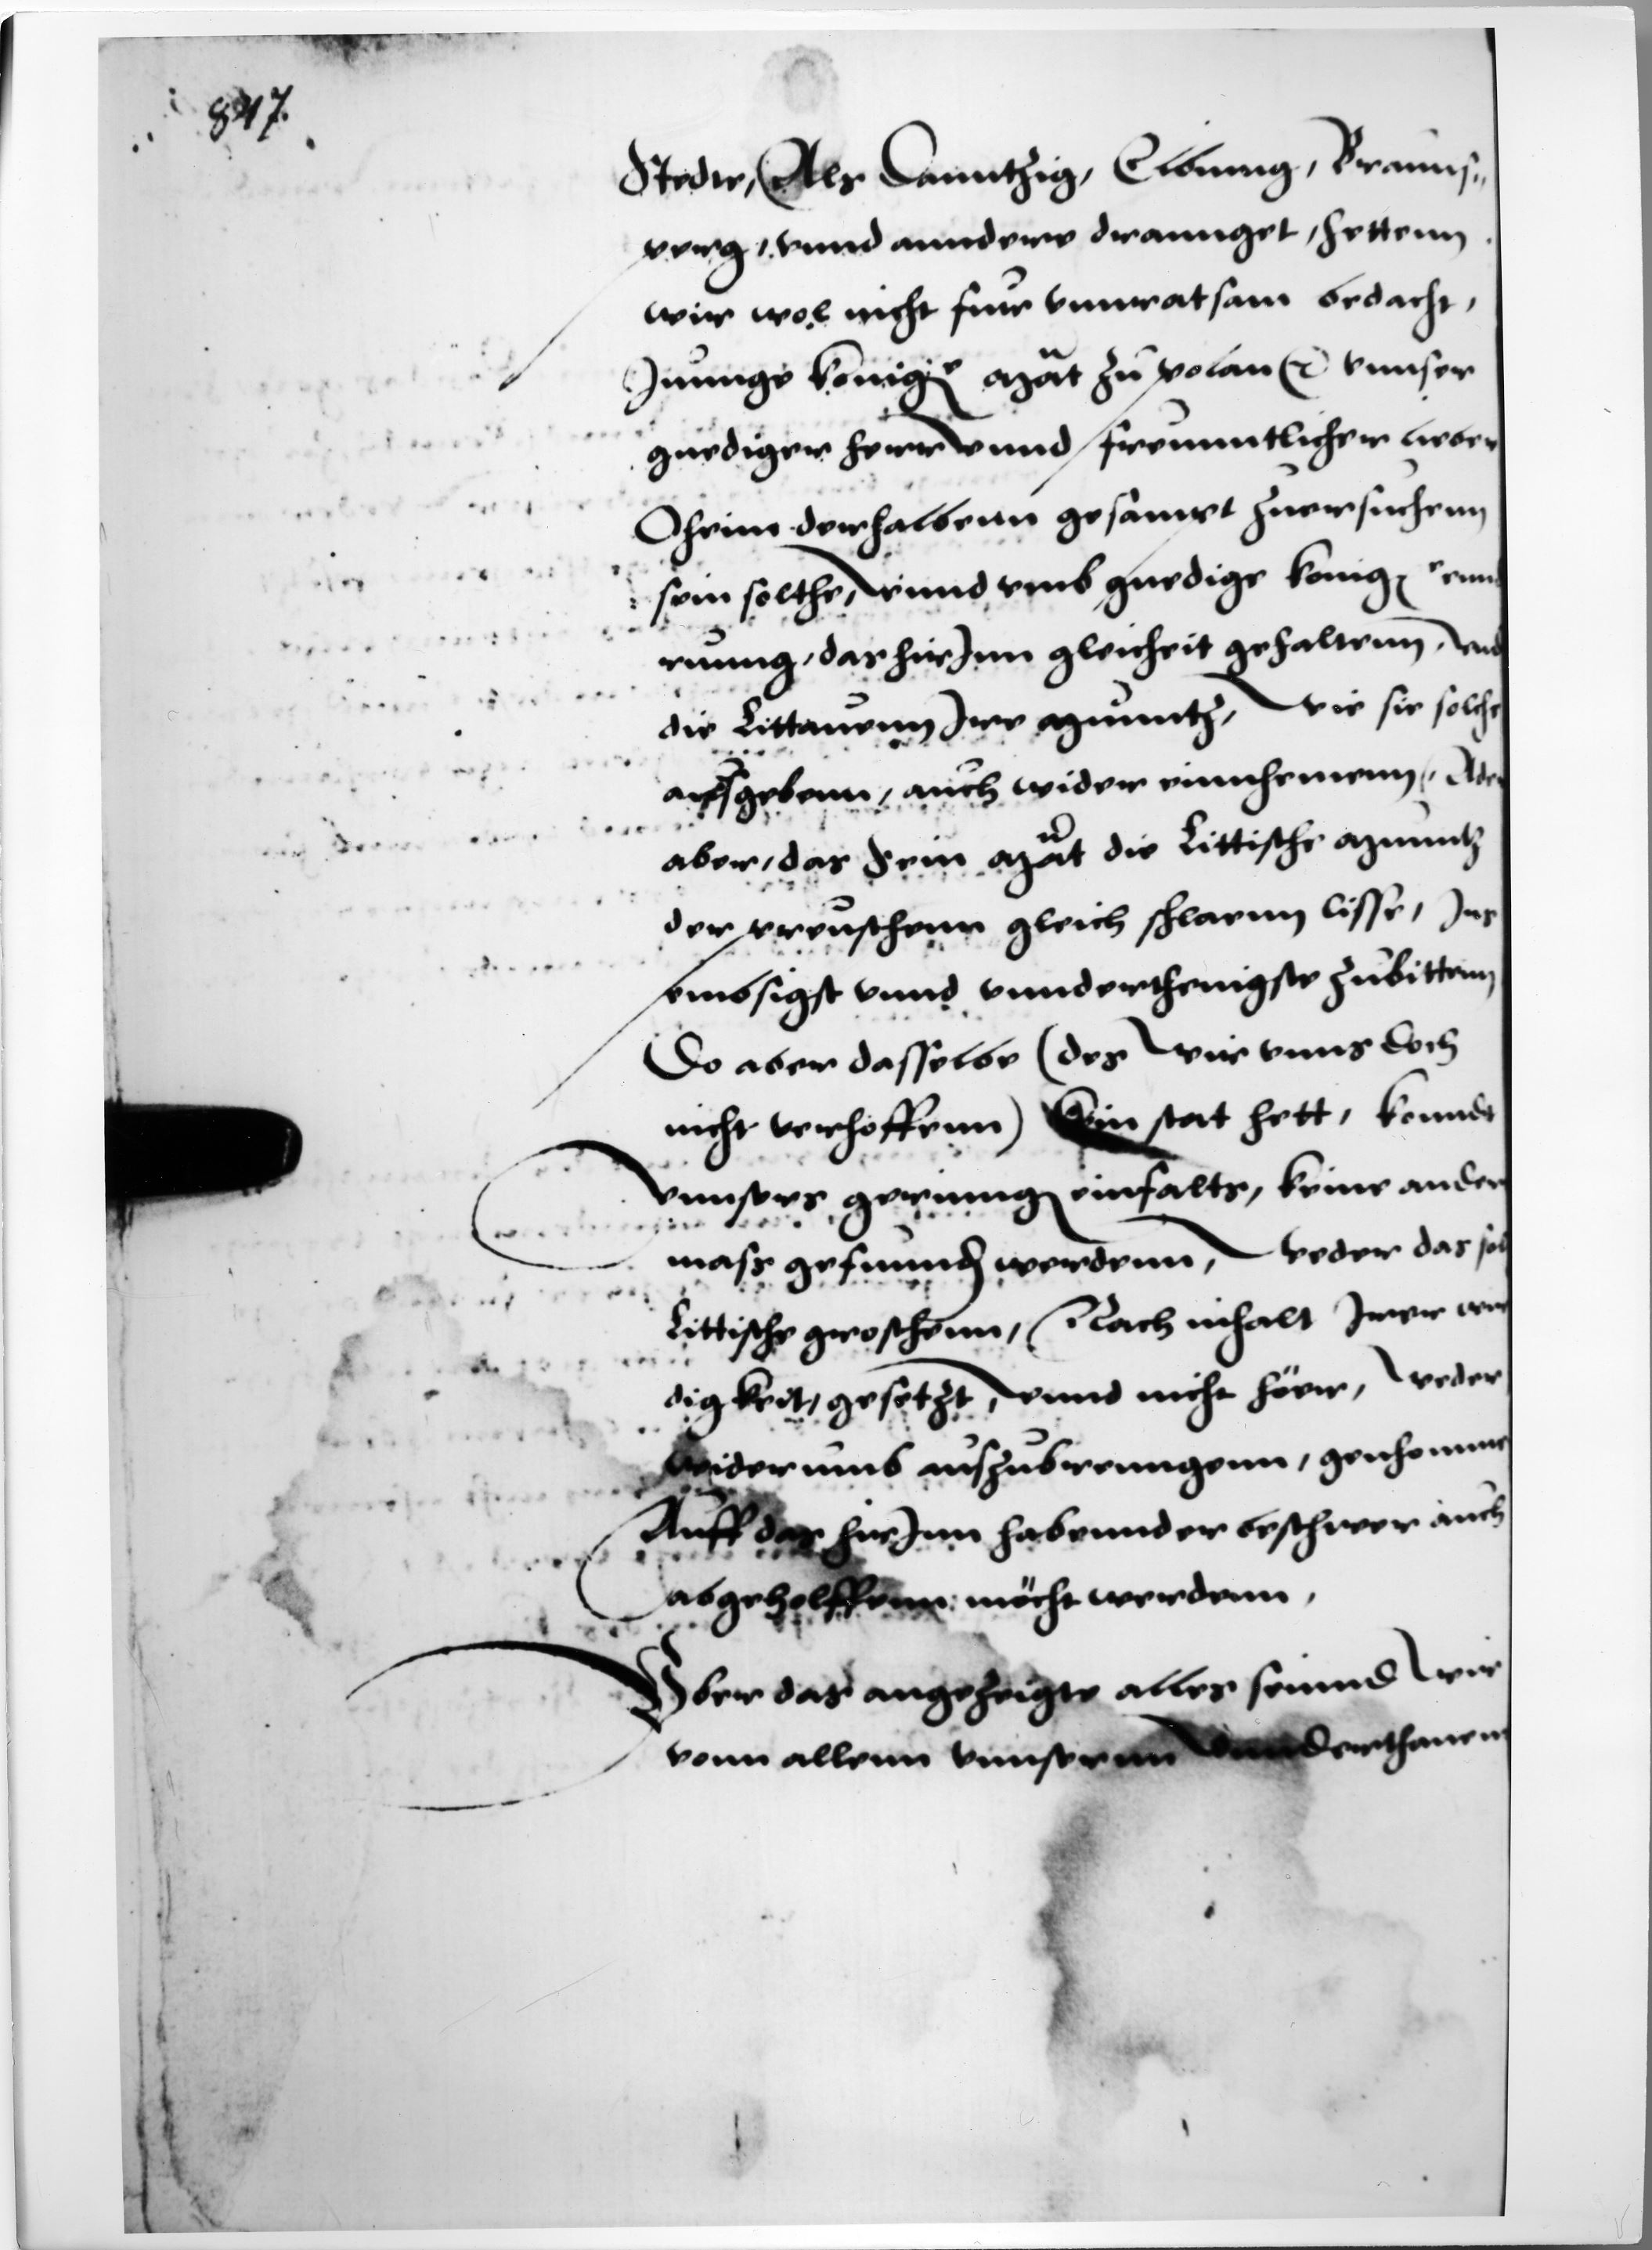 847.
Stedte, Als Danntzig, Elbinng, Brauns„
berg, vnnd anndere dranget, hettenn
wir wol nicht fuer vnnratsam bedacht,
Jn̄nge konige Mãt zu polan (x) vnnser
gnediger herr vnnd freunntlicher lieber
Oheim derhalbenn gesampt zuersuchenn
sein solthe, vnnd vmb gnedige konig
nung, das hirJnn gleicheit gehaltenn, vnd
die Littauenn Jre Munntz, wie sie solche
ausgebenn, auch wider einnhemenn, Ader
aber, das Sein Mãt die Littische Muntz
der preuschenn gleich schlaenn lisse, Jns
embsigst vnnd vnnderthenigste zubittenn
Do aber dasselbe (des wir vnns doch
nicht verhoffenn) kein stat hett, konndt
vnnsers gerinng einfalts, keine ander
mass gefunnd werdenn, weder das
Littische groschenn, Nach inhalt Jrer wir
digkeit, gesetzt, vnnd nicht höer, weder
widerumb auszubrenngenn, genhomme
Auff das hirJnn habennder beschwer auch
abgeholffenn möcht werdenn,
Vber das angezeigte alles seinnd wir
vonn allenn vnnserenn vnnderthanenn